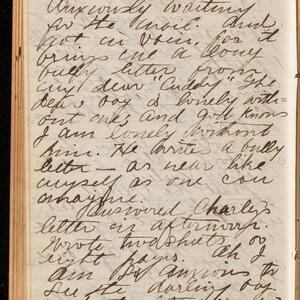 Anxiously waiting
for the mail and
not in vain, for it
brings me a long
bully letter from
my dear "Cuddy" The
dear boy is lonely with-
out me, and god knows
I am lonely without
him. He wrote a bully
letter — as near like
myself as one can
imagine.
Answered Charleys
letter in afternoon.
Wrote two sheets or
eight pages. Ah I
am so anxious to
see the darling boy.